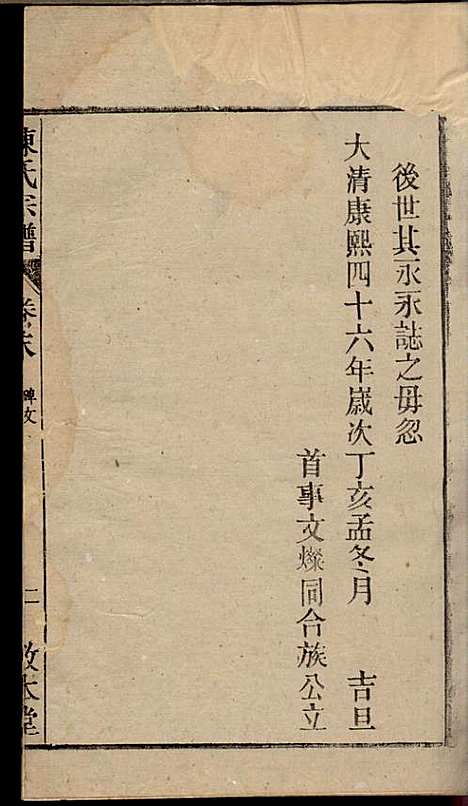 後世其永永誌之毋忽
大清康熙四十六年嵗次丁亥孟冬月　吉旦
首事文燦同合族公立
陳氏宗譜　卷末　碑文　二　敦本堂